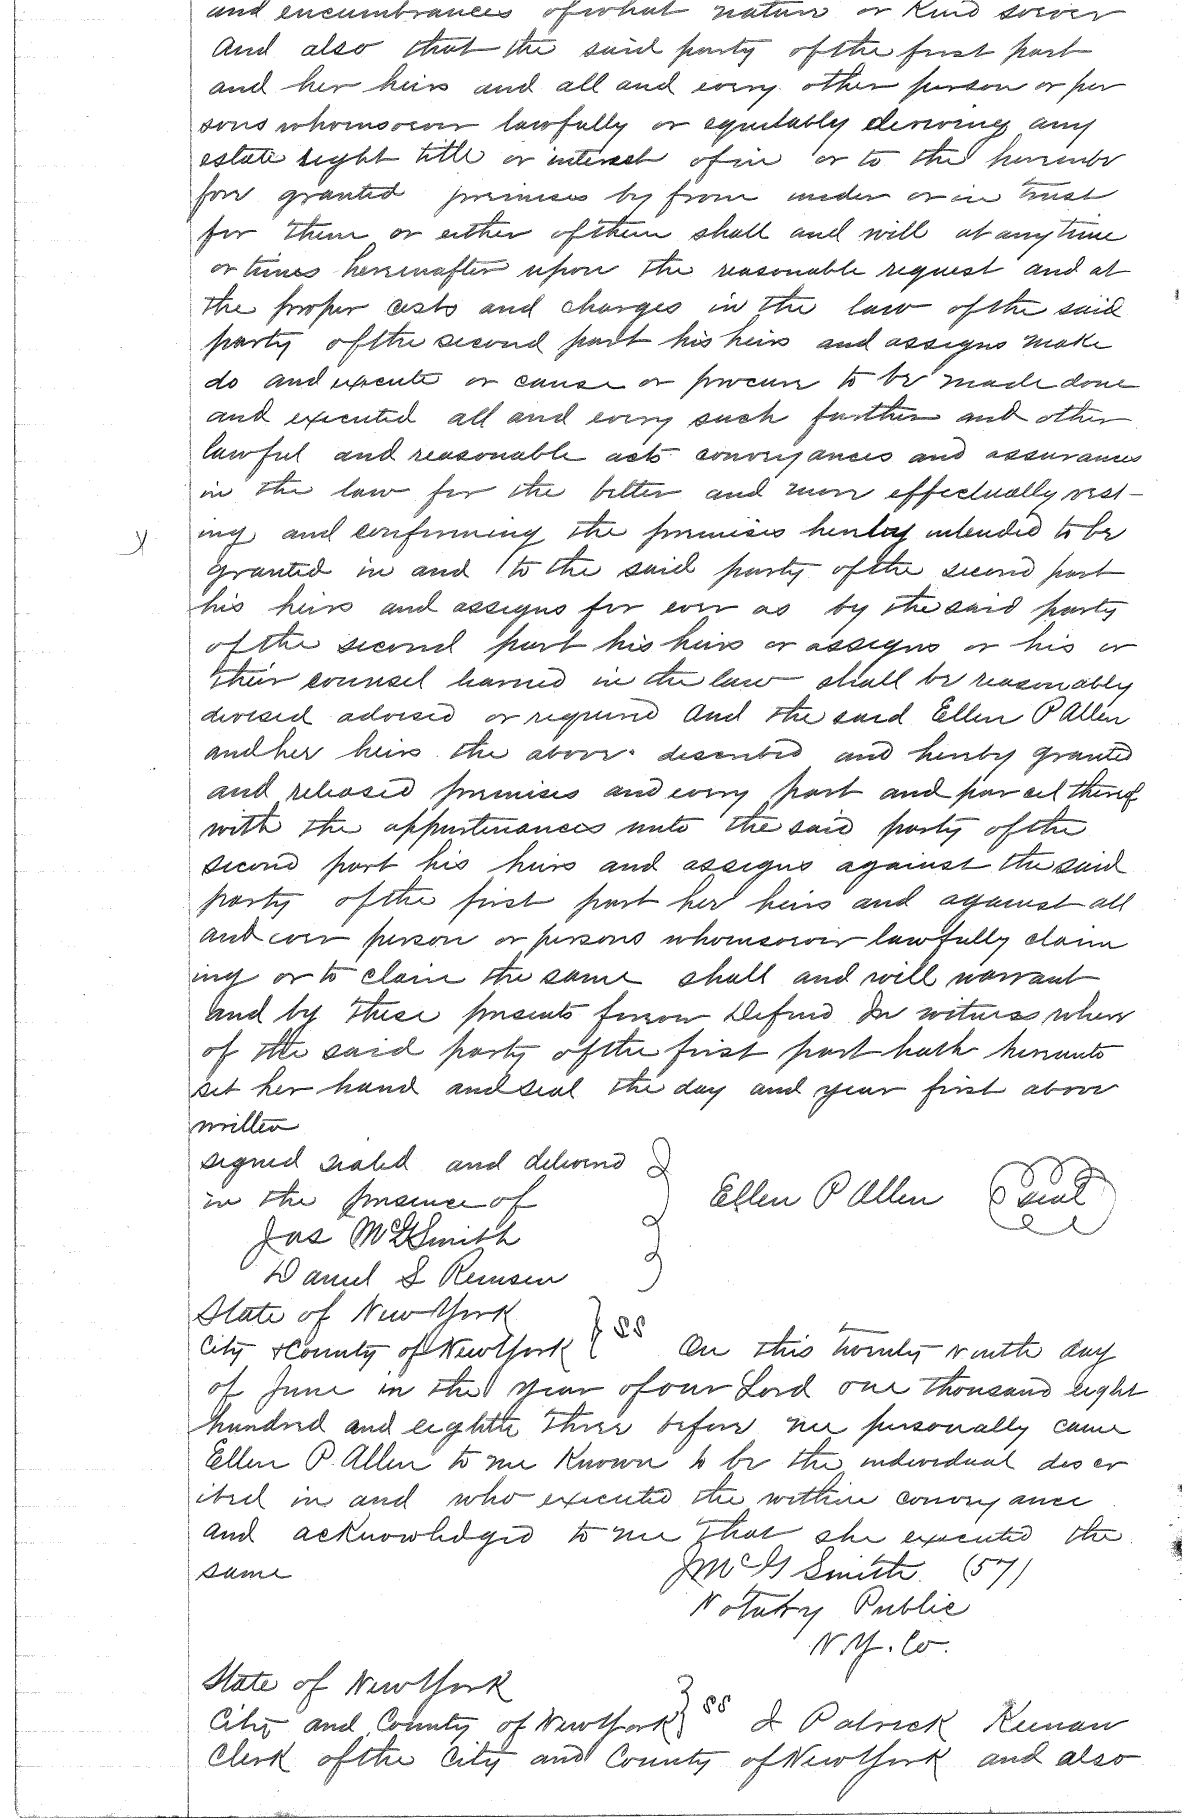 and encumbrances of what nature or Kind soever
And also that the said party of the first part
and her heirs and all and every other person or per
sons whomsoever lawfully or equitably deriving any
estate right title or interest of in or to the hereinbe
fore granted premises by from under or in trust
for them or either of them shall and will at any time
or times hereinafter upon the reasonable request and at
the proper costs and charges in the law of the said
party of the second part his heirs and assigns make
do and execute or cause or procure to be made done
and executed all and every such further and other
lawful and reasonable acts conveyances and assurances
in the law for the better and more effectually vest-
ing and confirming the premises hereby intended to be
granted in and to the said party of the second part
his heirs and assigns for ever as by the said party
of the second part his heirs or assigns or his or
their counsel learned in the law shall be reasonably
devised advised or required And the said Ellen P Allen
and her heirs the above described and hereby granted
and released premises and every part and parcel thereof
with the appurtenances unto the said party of the
second part his heirs and assigns against the said
party of the first part her heirs and against all
and ever person or persons whomsoever lawfully claim
y
ing or to claim the same shall and will warrant
and by these presents forever Defend In witness where
of the said party of the first part hath hereunto
set her hand and seal the day and year first above
written
signed sealed and delivered
in the presence of } Ellen P Allen seal
Jas McG Smith
Daniel S Remsen
State of New York
City & County of New York } SS On this twenty ninth day
of June in the year of our Lord one thousand eight
hundred and eighth three before me personally came
Ellen P. Allen to me Known to be the individual descr
ibed in and who executed the within conveyance
and acknowledged to me that she executed the
same J McG Smith (57)
Notary Public
N.Y. Co.
State of New York
City and County of New York } SS I Patrick Keenan
Clerk of the City and County of New York and also